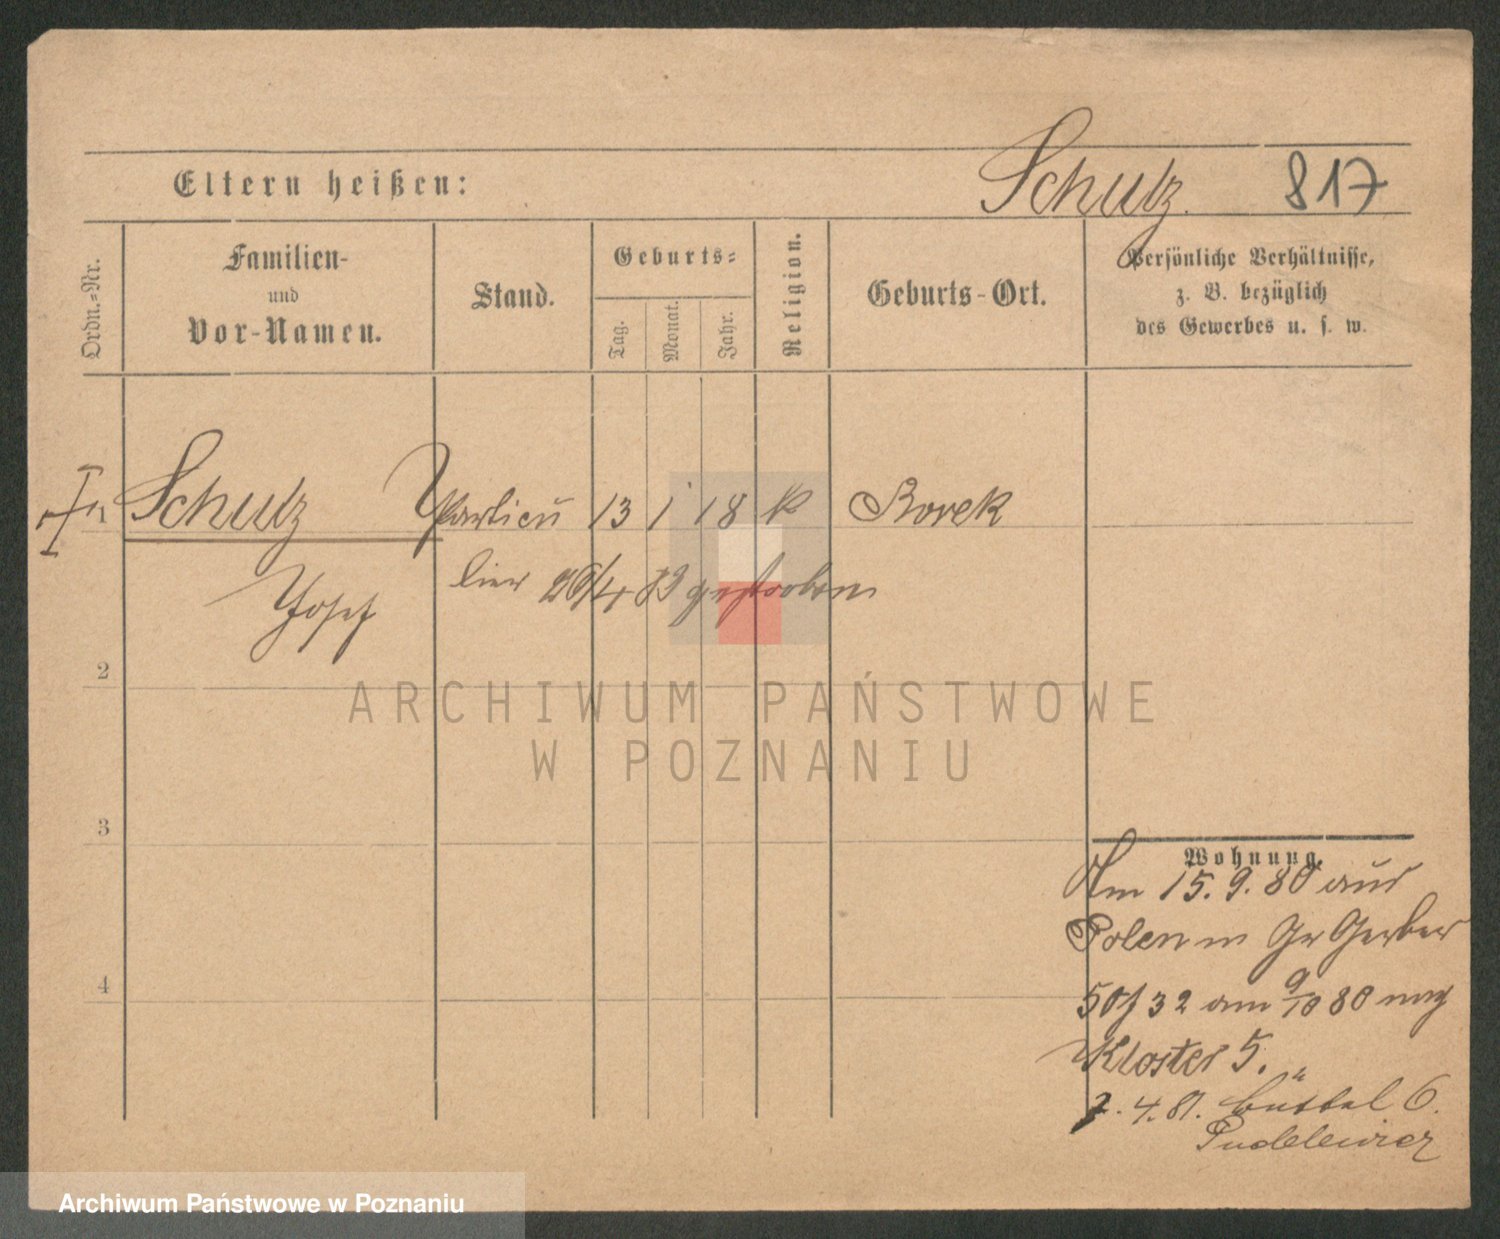 Eltern heißen:
Schulz.
817
Ordn.-Nr.
Familien-
und
Vor-Namen.
Stand.
Geburts-
Tag.
Monat.
Jahr.
Religion.
Geburts-Ort.
Persönliche Verhältnisse,
z. B. bezüglich
des Gewerbes u. s. w.
1 Schulz Particu 13 1 18 k Borek
lier 26/4 83 gestorben
Josef
2
ARCHIWUM PAŃSTWOWE
W POZNANIU
3
Wohnung.
Am 15. 9. 80 aus
Polen in Gr Gerber
50 / 32 am 9/10 80 nach
4
Kloster 5.
2. 4. 81. Büttel 6.
Pudelewicz
Archiwum Państwowe w Poznaniu